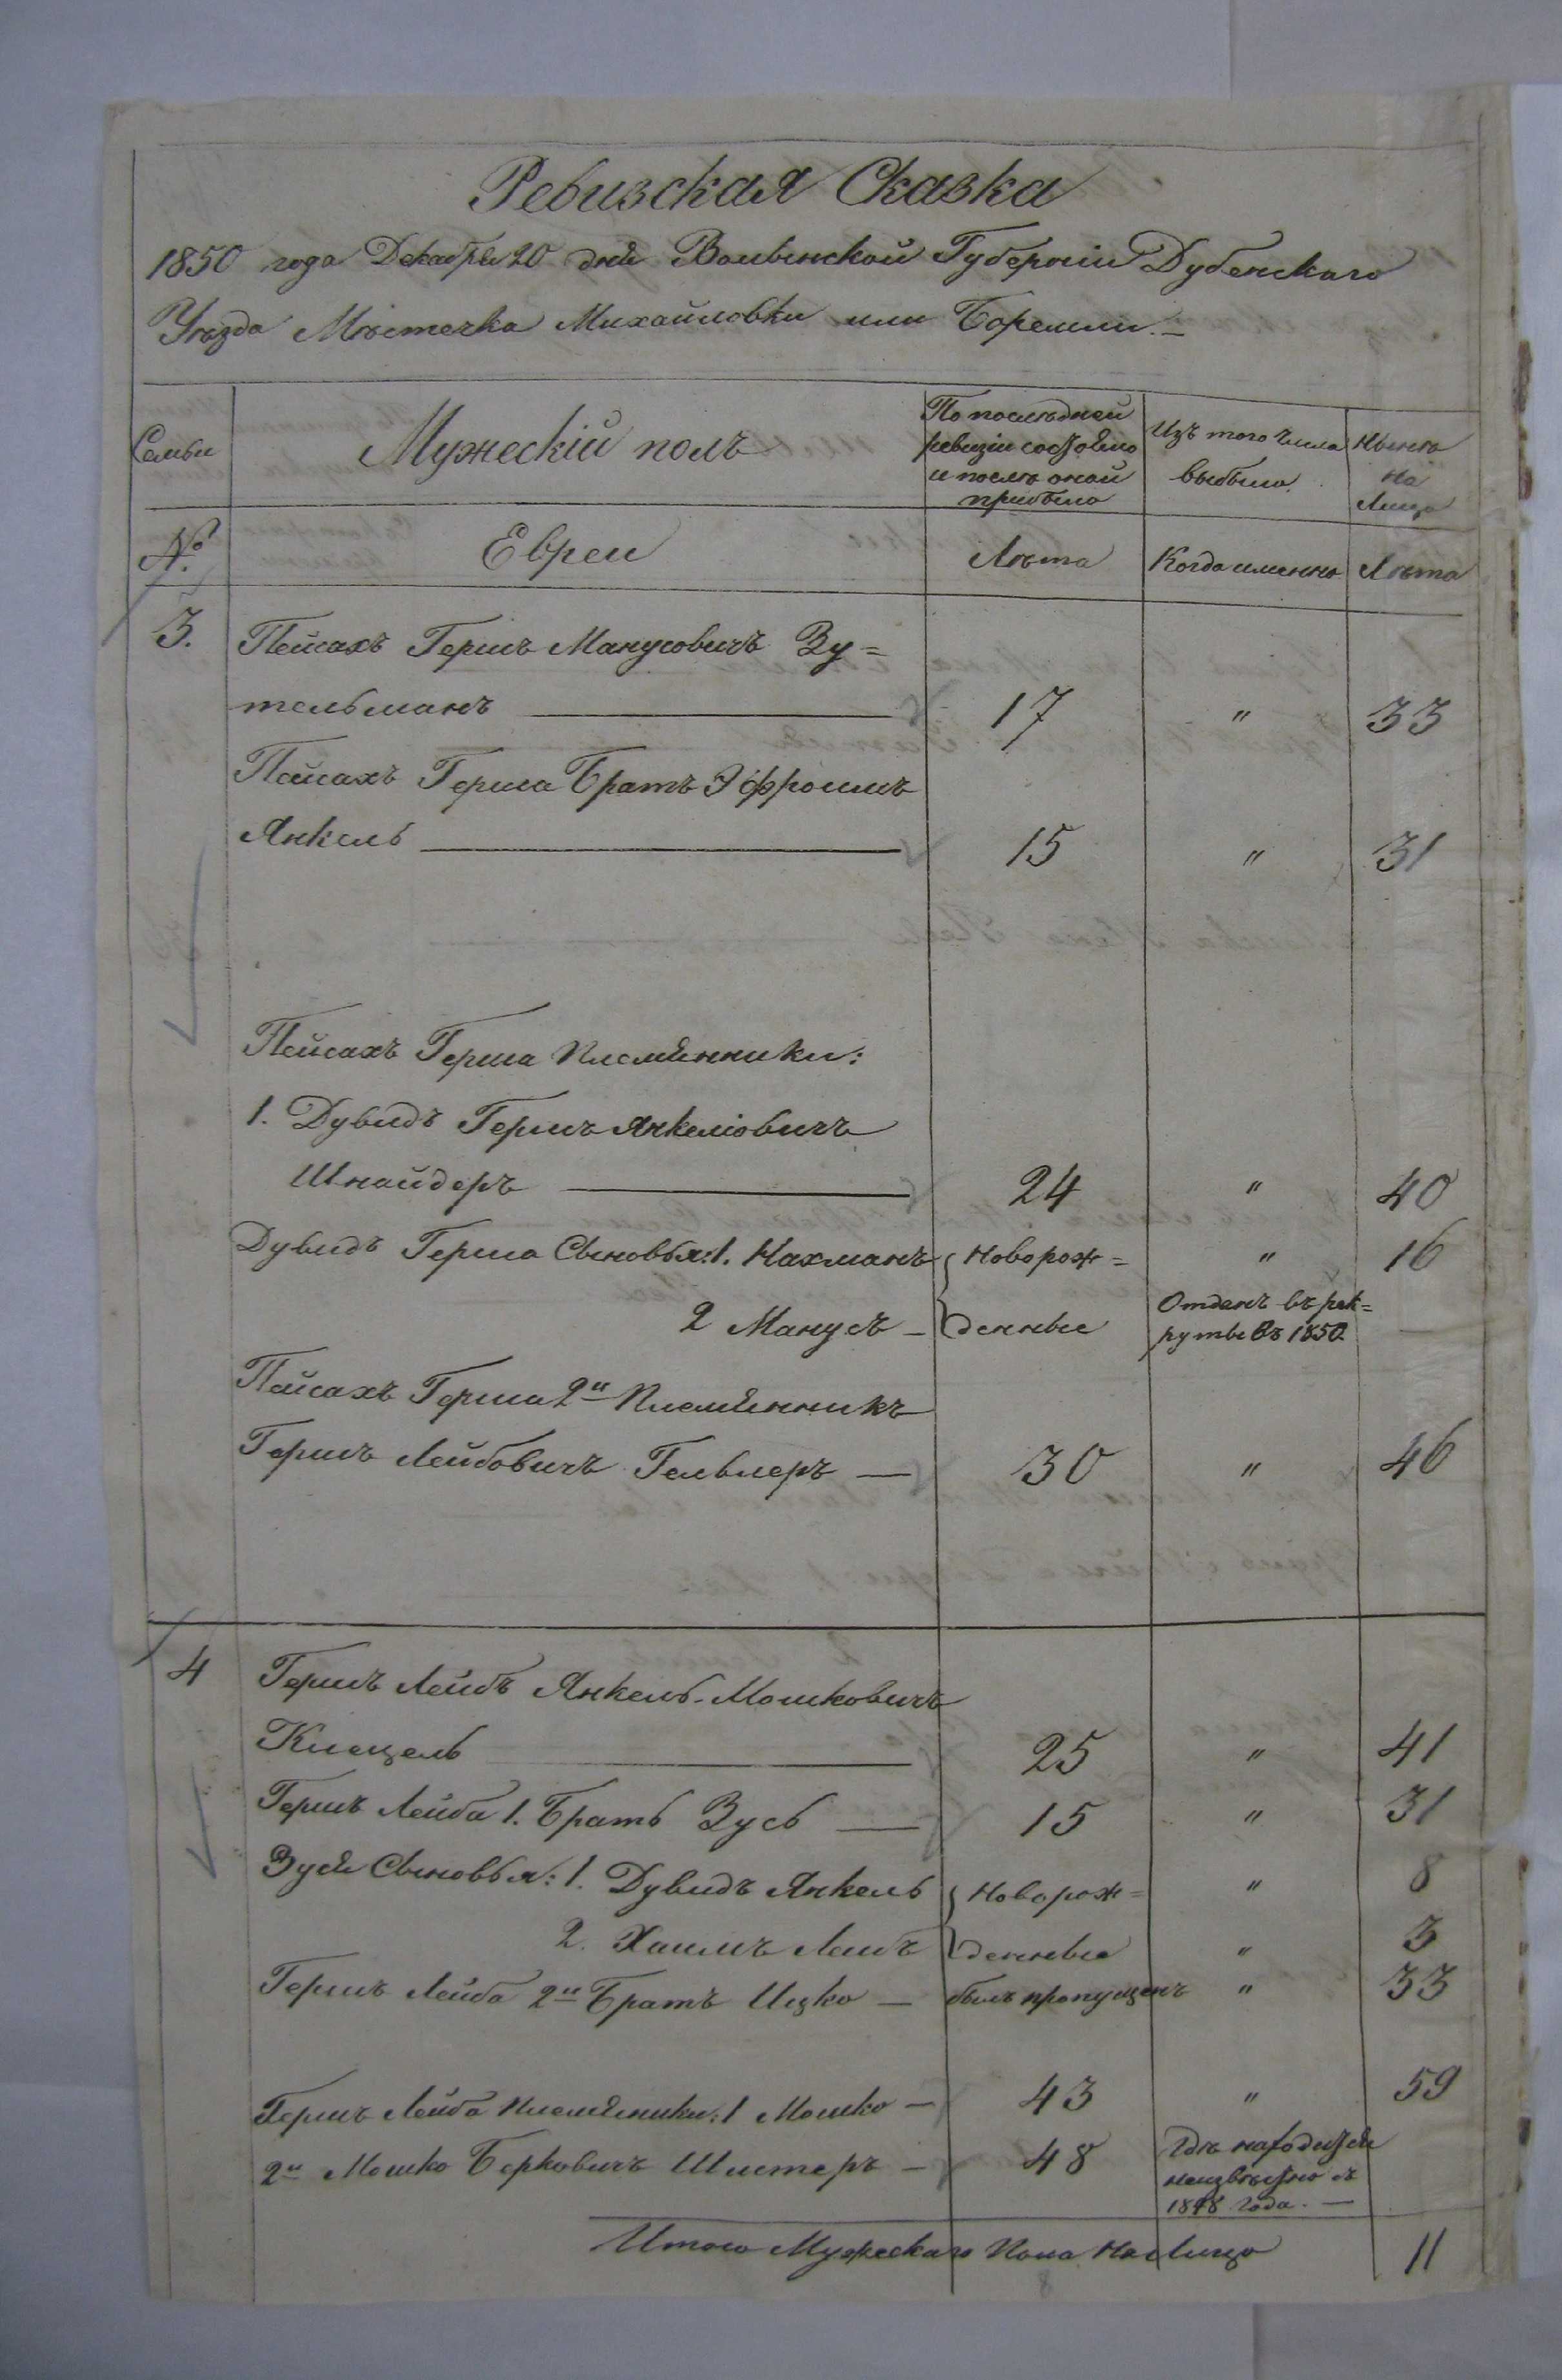 Ревизская Сказка
1850 года Декабря 20 дня Волынской Губерніи Дубенскаго
Уѣзда Мѣстечка Михайловки или Боремли. —
Семьи
Мужескій полъ
По послѣдней ревизіи состояло и послѣ оной прибыло
Изъ того числа выбыло.
Нынѣ на Лицо
№.
Евреи
Лѣта
Когда именно
Лѣта
3. Пейсахъ Гершъ Манусовичъ Зу=
тельманъ — 17 " 33
Пейсахъ Герша Братъ Эфроимъ
Янкель — 15 " 31
Пейсахъ Герша Племянники:
1. Дувидъ Гершъ Янкеліовичъ
Шнайдеръ — 24 " 40
Дувидъ Герша Сыновья: 1. Нахманъ Новорож= " 16
2 Манусъ — денные Отданъ въ рек=
руты въ 1850.
Пейсахъ Герша 2й Племянникъ
Гершъ Лейбовичъ — 30 " 46
4 Гершъ Лейбъ Янкель-Мошковичъ
25 " 41
Гершъ Лейба 1. Братъ Зусь — 15 " 31
Зуся Сыновья: 1. Дувидъ Янкель Новорож= " 8
2. Хаимъ Леибъ денные " 3
Гершъ Лейба 2й Братъ Ицко — былъ пропущенъ " 33
Гершъ Лейба племянники: 1 Мошко — 43 " 59
2й Мошко Берковичъ — 48 Гдѣ находится
неизвѣстно съ
1848 года. —
Итого Мужескаго Пола на Лицо 11